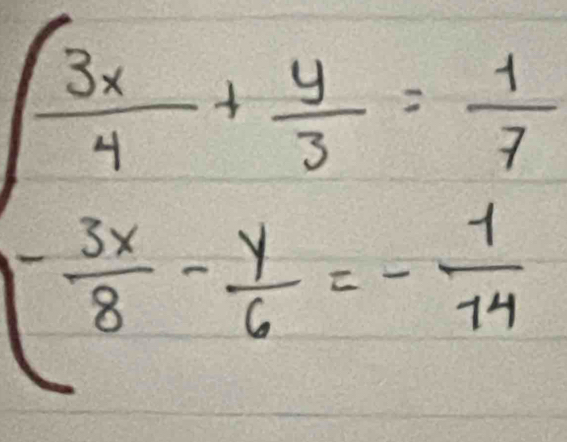 3x/4 + y/3 = 1/7
-3x/8 - y/6 = -1/14